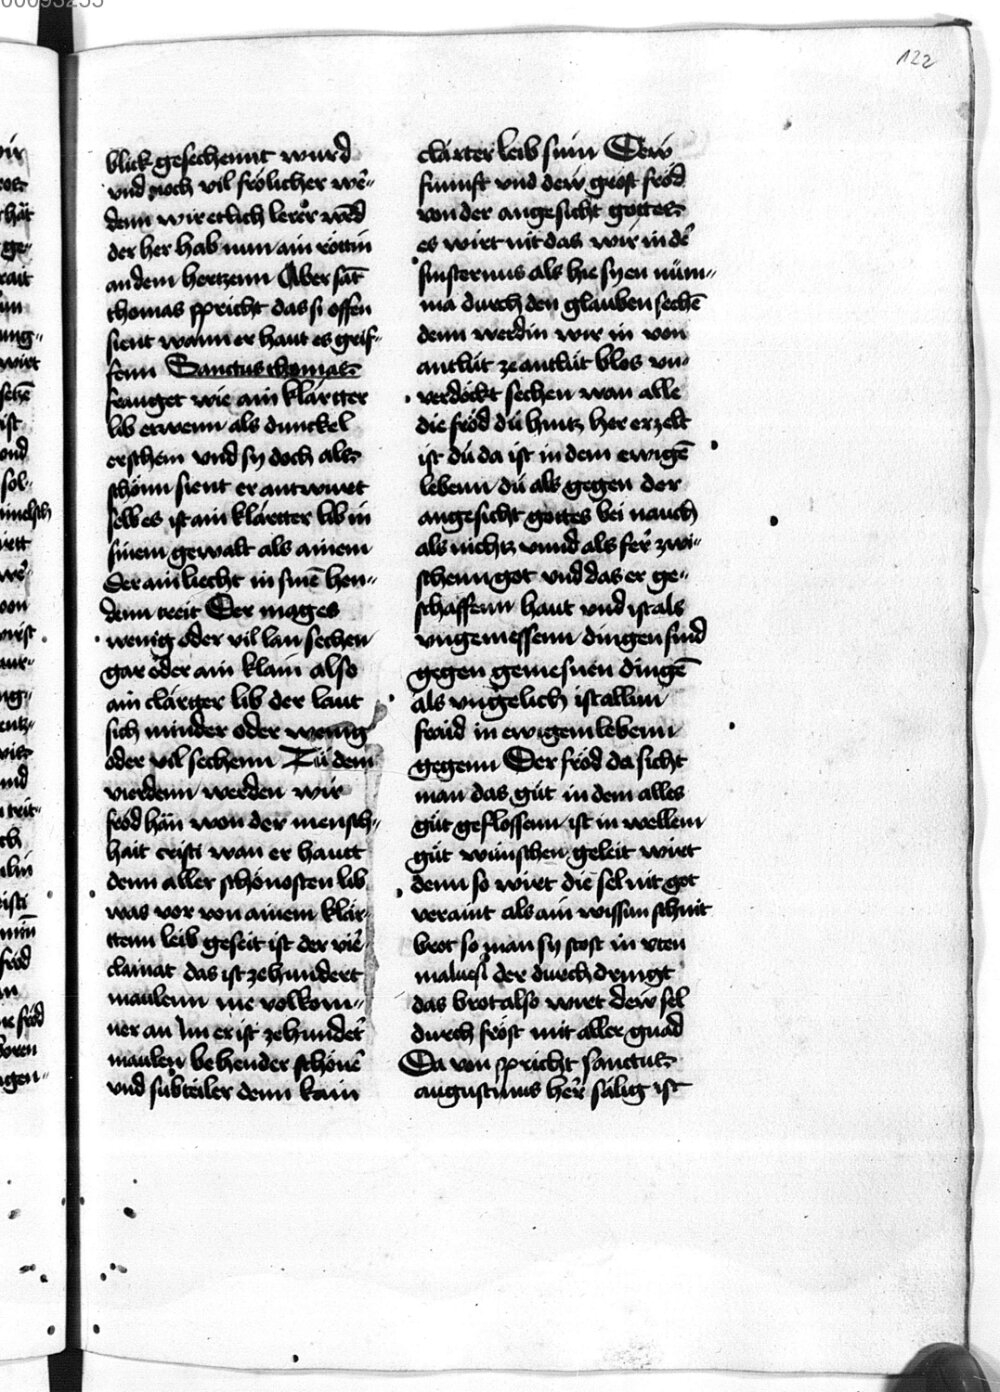 122
blick gesechennt wurd
vnd noch vil frölicher wē-
denn wir etlich lerer wēd
der her hab nun ain röttin
an dem hertzenn Aber sāt
thomas spricht das si offen
sient wann er haut es grif-
fenn Sanctus thomas
frauget wie ain klärtter
lib erwenn als dunckel
erschein vnd sy doch als
schönn sient er antwurt
selb es ist ain klärtter lib in
sinem gewalt als ainem
der ain liecht in sinē hen-
denn treit Der mag es
wenig oder vil lan sechen
gar oder ain klain also
ain clärtter lib der laut
sich minder oder wenig
oder vil sechenn Zü dem
vierdenn werden wir
fröd hän von der mensch-
hait cristi wan er hautt
denn aller schönosten lib
was vor von ainem klär-
ttenn leib geseit ist der viē-
clainat das ist zehundert
maulenn me volkom-
ner an im er ist zehundēt
maulen behender schönē
vnd subteiler denn kain
clärter leib sinn Dew
finnft vnd dew gröst fröd
von der angesicht gottes
es wirt nit das wir in dē
finsternus als hie syen nüm-
ma durch den glauben sechē
denn werdin wir in von
antlüt ze antlüt blos vn-
verdöckt sechen wan alle
die fröd dü hintz her erzelt
ist dü da ist in dem ewigē
lebenn dü als gegen der
angesicht gottes bei nauch
als nichtz vnnd als fer zwi-
schenn got vnd das er ge-
schaffenn haut vnd ist als
vngemessenn dingen sind
gegen gemesnen dingē
als vngelich ist allun
fraid in ewigem lebenn
gegenn Der fröd da sicht
man das güt in dem alles
güt geflossenn ist in wellem
güt wünschen geleit wirt
denn so wirt die sel nit got
veraint als ain wissun schnit
brot so man sy stost in vten
maluesi der durch dringt
das brot also wirt dew sel
durch fröst mit aller gnad
Da von spricht sanctus
augustinus her sälig ist